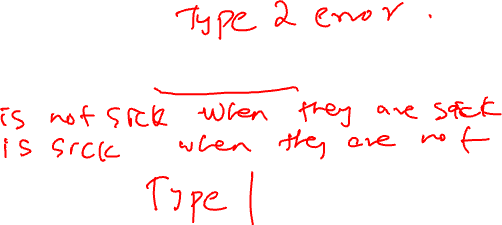 Type 2 error.
is not sick when they are sick
is sick when they are not
Type 1